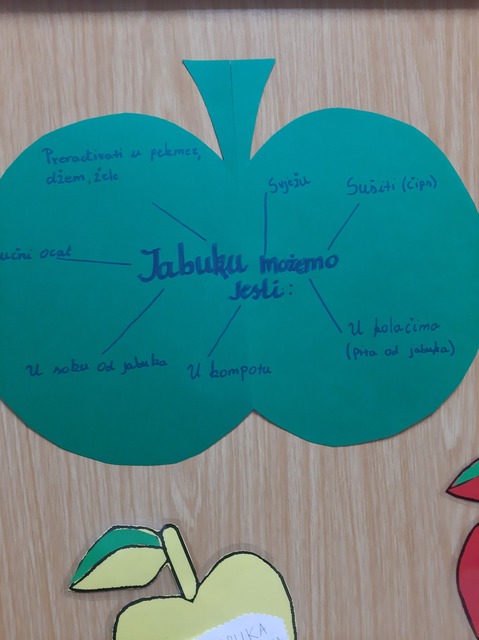 Preraditivati u pekmez,
džem, žele
Svježu
Sušiti (čips)
učni ocat
Jabuku možemo
jesti:
U kolačima
(pita od jabuka)
U soku od jabuka
U kompotu
UKA